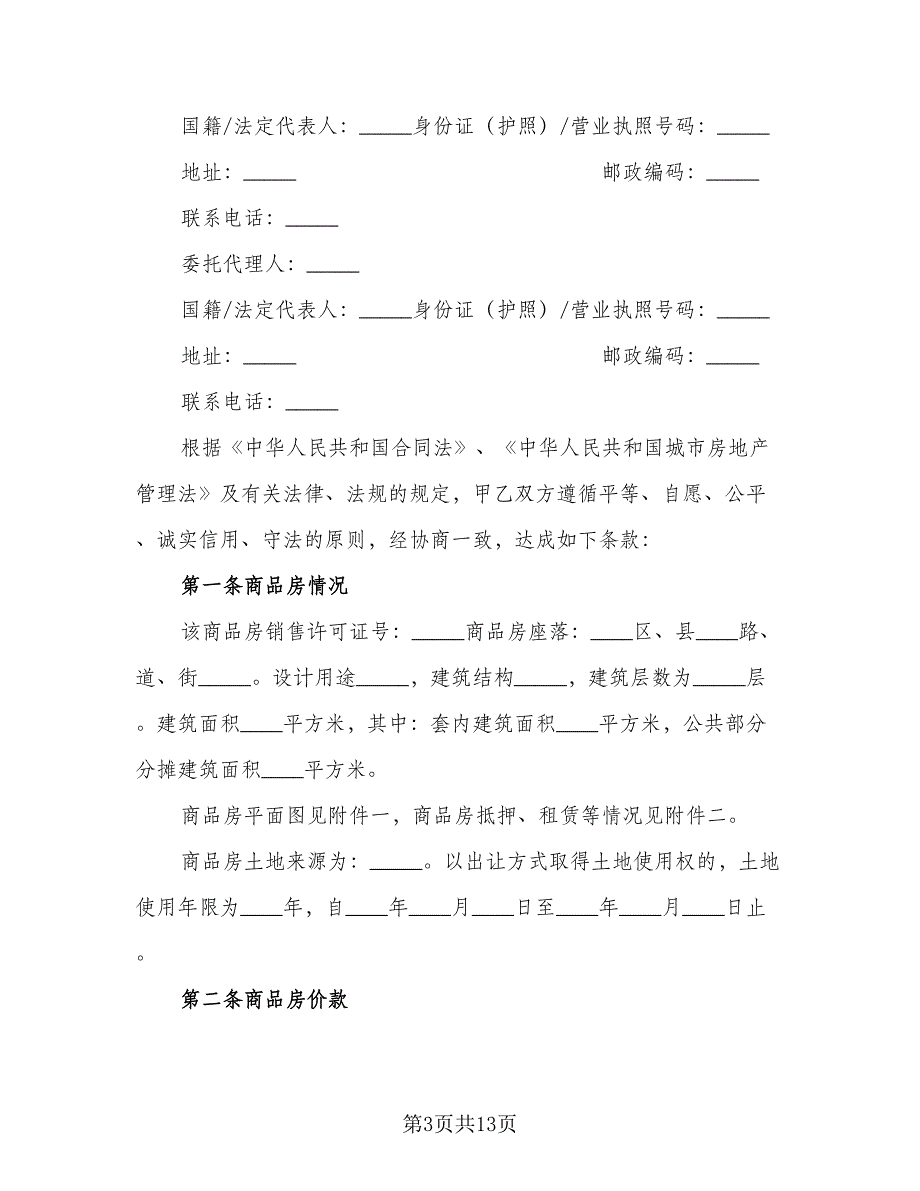 国籍/法定代表人：_____身份证（护照）/营业执照号码：_____
地址：_____ 邮政编码：_____
联系电话：_____
委托代理人：_____
国籍/法定代表人：_____身份证（护照）/营业执照号码：_____
地址：_____ 邮政编码：_____
联系电话：_____
根据《中华人民共和国合同法》、《中华人民共和国城市房地产
管理法》及有关法律、法规的规定，甲乙双方遵循平等、自愿、公平
、诚实信用、守法的原则，经协商一致，达成如下条款：
第一条商品房情况
该商品房销售许可证号：_____商品房座落：____区、县____路、
道、街_____。设计用途_____，建筑结构_____，建筑层数为_____层
。建筑面积____平方米，其中：套内建筑面积____平方米，公共部分
分摊建筑面积____平方米。
商品房平面图见附件一，商品房抵押、租赁等情况见附件二。
商品房土地来源为：_____。以出让方式取得土地使用权的，土地
使用年限为____年，自____年____月____日至____年____月____日止
。
第二条商品房价款
第3页共13页